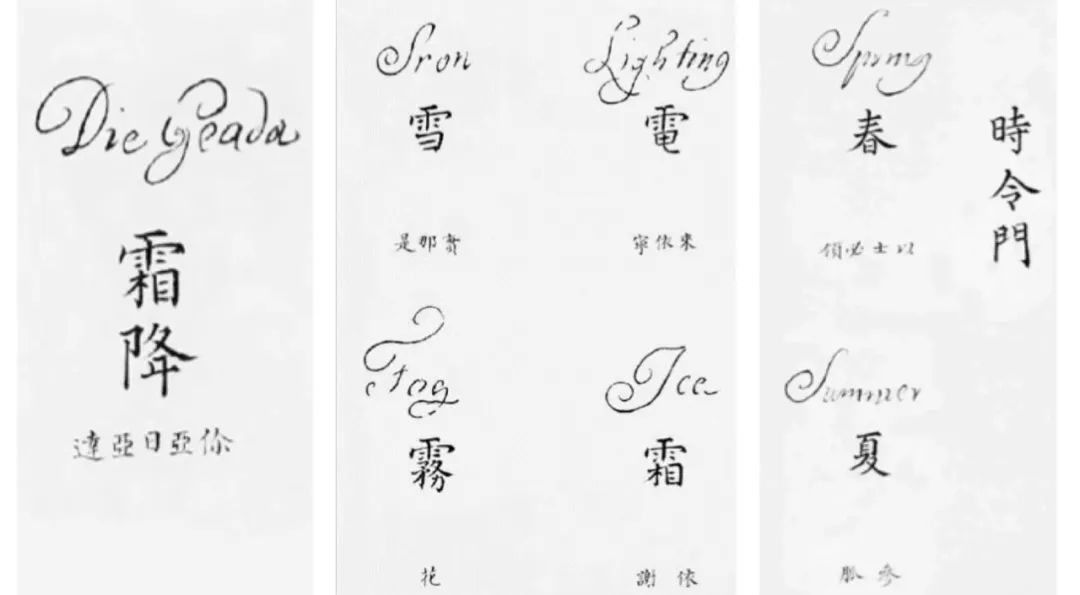 Die Geada
霜降
達亞日亞
Sron
雪
是那實
Lighting
電
寧依來
Fog
霧
花
Ice
霜
謝依
時令門
Spring
春
領必士以
Summer
夏
參